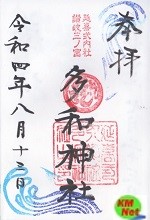 奉拝
延喜式内社
讃岐三ノ宮
多和神社
令和四年八月十三日
KM
Net